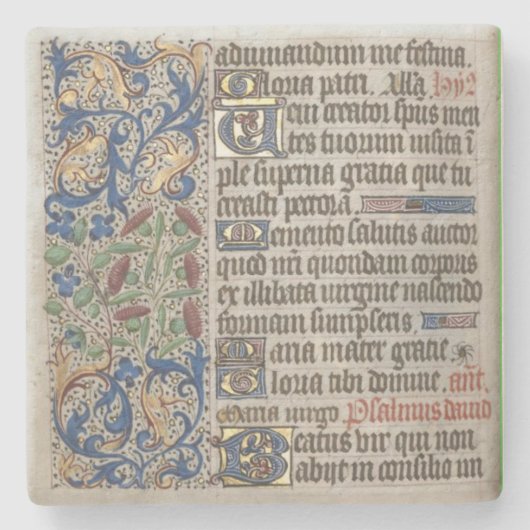 adiuuandum me festina.
Gloria patri. Alla. hyz
Ueni creator spus men
tes tuorum uisita i
ple superna gratia que tu
creasti pectora
Memento salutis auctor
quod nri quondam corporis
ex illibata uirgine nascendo
formam sumpseris.
Maria mater gratie
Gloria tibi domine. ant.
Maria uirgo Psalmus dauid
Beatus uir qui non
abijt in consilio im